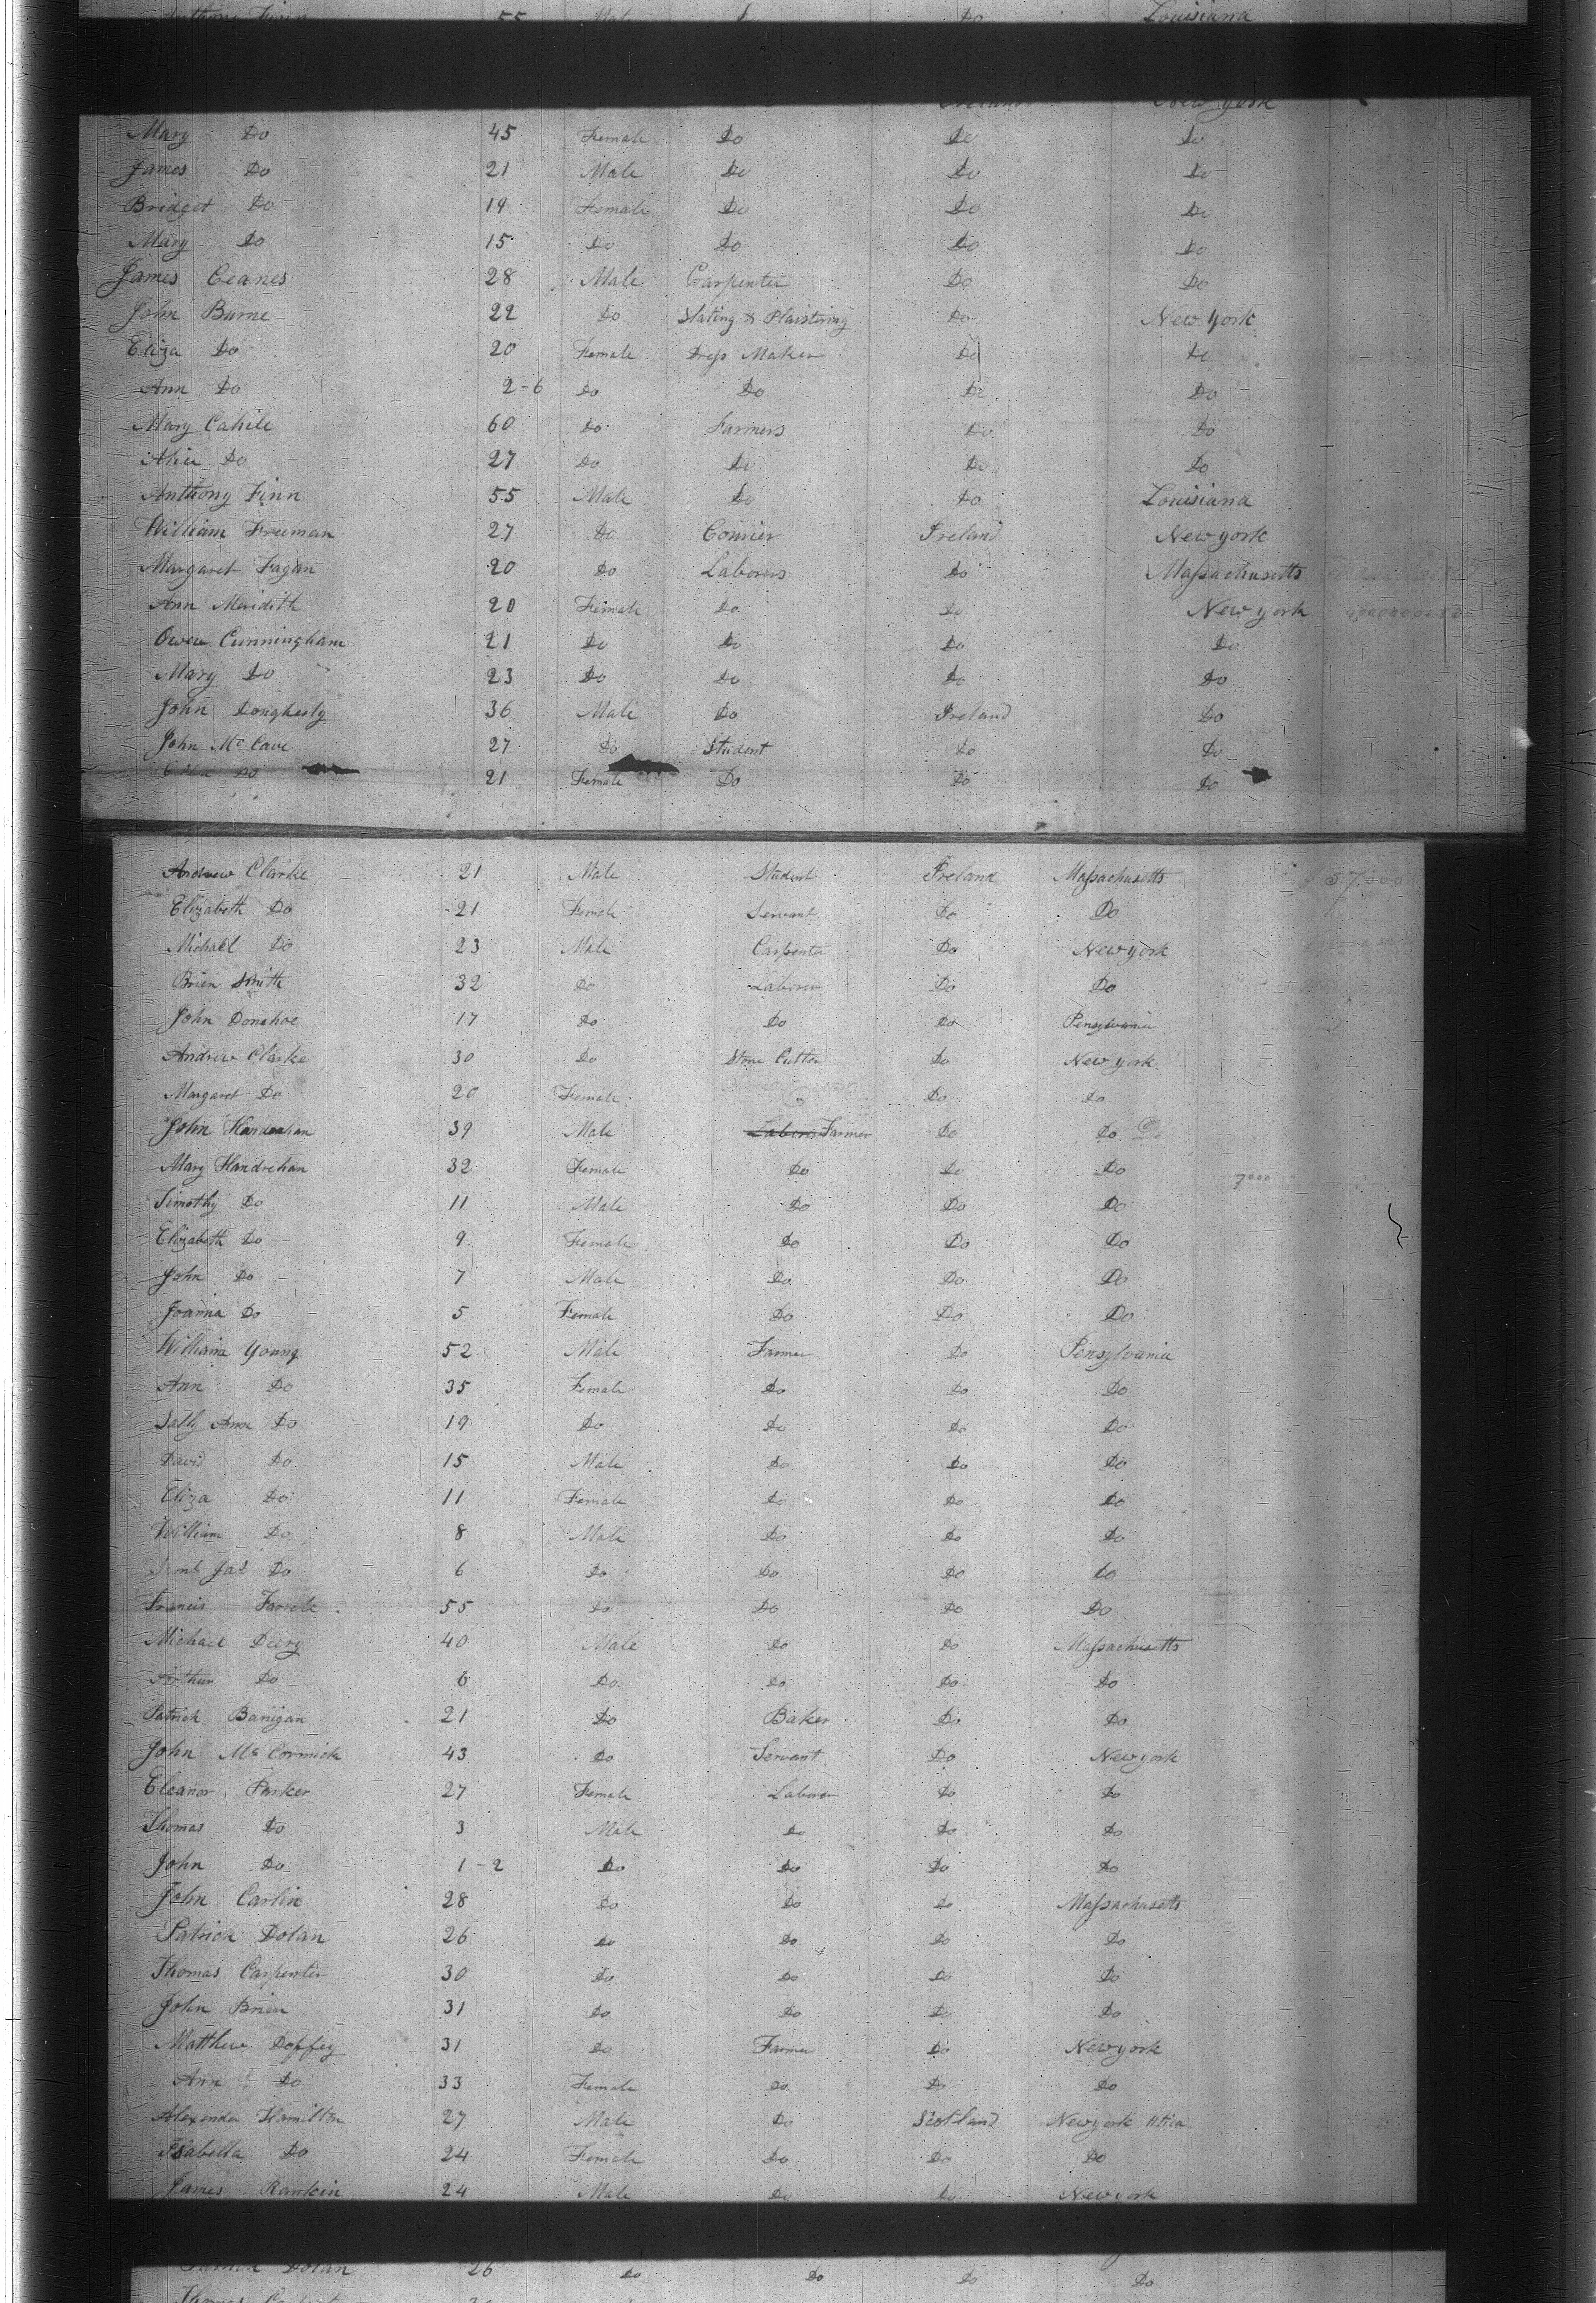 Anthony Finn 55 Male Do Do Louisiana
Ireland New York
Mary Do 45 Female Do Do Do
James Do 21 Male Do Do Do
Bridget Do 19 Female Do Do Do
Mary Do 15 Do Do Do Do
James Ceanes 28 Male Carpenter Do Do
John Burne 22 Do Slating & Plaistering Do New York
Eliza Do 20 Female Dress Maker Do Do
Ann Do 2-6 Do Do Do Do
Mary Cahile 60 Do Farmers Do Do
Alice Do 27 Do Do Do Do
Anthony Finn 55 Male Do Do Louisiana
William Freeman 27 Do Ireland New york
Margaret Fagan 20 Do Laborers Do Massachusetts
Ann Meridith 20 Female Do Do New york
Owen Cunningham 21 Do Do Do Do
Mary Do 23 Do Do Do Do
John Dougherty 36 Male Do Ireland Do
John McCave 27 Do Student Do Do
Do 21 Female Do Do Do
Andrew Clarke 21 Male Student Ireland Massachusetts
Elizabeth Do 21 Female Servant Do Do
Michael Do 23 Male Carpenter Do New york
Brien Smith 32 Do Laborer Do Do
John Donahoe 17 Do Do Do Pensylvania
Andrew Clarke 30 Do Stone Cutter Do New york
Margaret Do 20 Female " Do Do
John Handrahan 39 Male Laborer Farmer Do Do
Mary Handrehan 32 Female Do Do Do 7000
Timothy Do 11 Male Do Do Do
Elizabeth Do 9 Female Do Do Do
John Do 7 Male Do Do Do
Joanna Do 5 Female Do Do Do
William Young 52 Male Farmer Do Pensylvania
Ann Do 35 Female Do Do Do
Sally Ann Do 19 Do Do Do Do
David Do 15 Male Do Do Do
Eliza Do 11 Female Do Do Do
William Do 8 Male Do Do Do
Jas Do 6 Do Do Do Do
Francis Farrele 55 Do Do Do Do
Michael Deery 40 Male Do Do Massachusetts
Arthur Do 6 Do Do Do Do
Patrick Banigan 21 Do Baker Do Do
John McCormick 43 Do Servant Do New york
Eleanor Parker 27 Female Laborer Do Do
Thomas Do 3 Male Do Do Do
John Do 1-2 Do Do Do Do
John Carlin 28 Do Do Do Massachusetts
Patrick Dolan 26 Do Do Do Do
Thomas Carpenter 30 Do Do Do Do
John Brien 31 Do Do Do Do
Matthew Doffey 31 Do Farmer Do New york
Ann Do 33 Female Do Do Do
Alexander Hamilton 27 Male Do Scotland New york Utica
Isabella Do 24 Female Do Do Do
James Rankin 24 Male Do Do New york
Patrick Dolan 26 Do Do Do Do